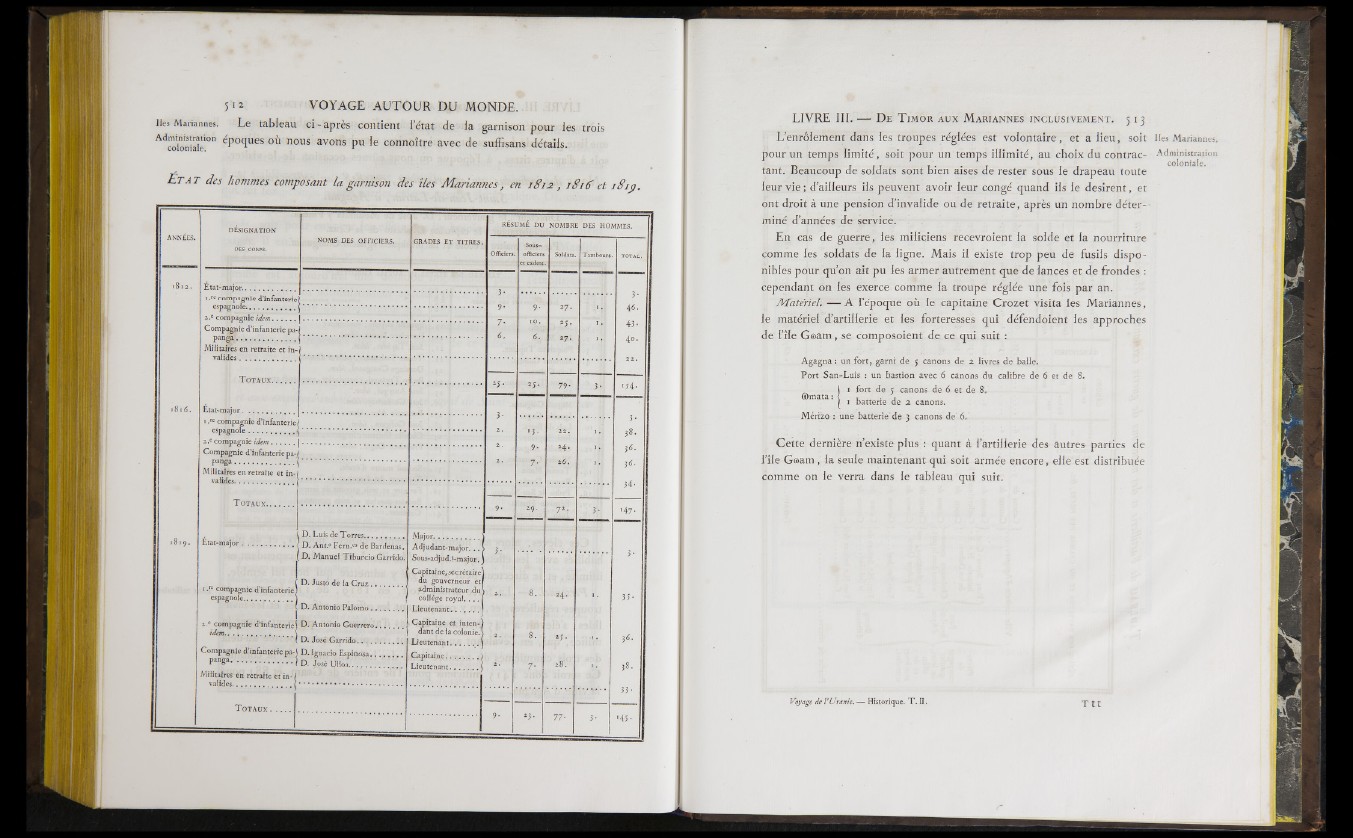 512 VOYAGE AUTOUR DU MONDE.
Iles Mariannes.
Administration
coloniale.
Le tableau ci-après contient l'état de la garnison pour les trois
époques où nous avons pu le connoître avec de suffisans détails.
ÉTAT des hommes composant la garnison des îles Mariannes, en 1812, 1816 et 1819.
ANNÉES. DÉSIGNATION DES CORPS. NOMS DES OFFICIERS. GRADES ET TITRES. RÉSUMÉ DU NOMBRE DES HOMMES.
Officiers. Sous-officiers et cadets. Soldats. Tambours. TOTAL.
1812. État-major. 3. 3.
1.re compagnie d'infanterie
espagnole. 9. 9. 27. 1. 46.
2.e compagnie idem. 7. 10. 25. 1. 43.
Compagnie d'infanterie pa-
panga. 6. 6. 27. 1. 40.
Militaires en retraite et in-
valides. 22.
TOTAUX. 25. 25. 79. 3. 154.
1816. État-major. 3. 3.
1.re compagnie d'infanterie
espagnole. 2. 13. 22. 1. 38.
2.e compagnie idem. 2. 9. 24. 1. 36.
Compagnie d'infanterie pa-
panga. 2. 7. 26. 1. 36.
Militaires en retraite et in-
valides. 34.
TOTAUX. 9. 29. 72. 3. 147.
1819. État-major. D. Luis de Torres. Major.
D. Ant.o Fern.do de Bardenas. Adjudant-major. 3. 3.
D. Manuel Tiburcio Garrido. Sous-adjud.t-major.
1.re compagnie d'infanterie
espagnole. D. Justo de la Cruz. Capitaine, secrétaire
du gouverneur et
administrateur du
collége royal. 2. 8. 24. 1. 35.
D. Antonio Palomo. Lieutenant.
2.e compagnie d'infanterie D. Antonio Guerrero. Capitaine et inten-
idem. dant de la colonie. 2. 8. 25. 1. 36.
D. José Garrido. Lieutenant.
Compagnie d'infanterie pa- D. Ignacio Espinosa. Capitaine.
panga. D. José Ulloa. Lieutenant. 2. 7. 28. 1. 38.
Militaires en retraite et in-
valides. 33.
TOTAUX. 9. 23. 77. 3. 145.
LIVRE III. — DE TIMOR AUX MARIANNES INCLUSIVEMENT. 513
Iles Mariannes.
Administration
coloniale.
L'enrôlement dans les troupes réglées est volontaire, et a lieu, soit
pour un temps limité, soit pour un temps illimité, au choix du contrac-
tant. Beaucoup de soldats sont bien aises de rester sous le drapeau toute
leur vie; d'ailleurs ils peuvent avoir leur congé quand ils le desirent, et
ont droit à une pension d'invalide ou de retraite, après un nombre déter-
miné d'années de service.
En cas de guerre, les miliciens recevroient la solde et la nourriture
comme les soldats de la ligne. Mais il existe trop peu de fusils dispo-
nibles pour qu'on ait pu les armer autrement que de lances et de frondes :
cependant on les exerce comme la troupe réglée une fois par an.
Matériel. — A l'époque où le capitaine Crozet visita les Mariannes,
le matériel d'artillerie et les forteresses qui défendoient les approches
de l'île Gwam, se composoient de ce qui suit :
Agagna : un fort, garni de 5 canons de 2 livres de balle.
Port San-Luis : un bastion avec 6 canons du calibre de 6 et de 8.
Ꞷmata : 1 fort de 5 canons de 6 et de 8.
1 batterie de 2 canons.
Mérizo : une batterie de 3 canons de 6.
Cette dernière n'existe plus : quant à l'artillerie des autres parties de
l'île Gwam, la seule maintenant qui soit armée encore, elle est distribuée
comme on le verra dans le tableau qui suit.
Voyage de l'Uranie. — Historique. T. II. Ttt